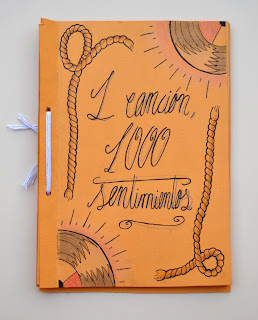 1 canción,
1000
sentimientos